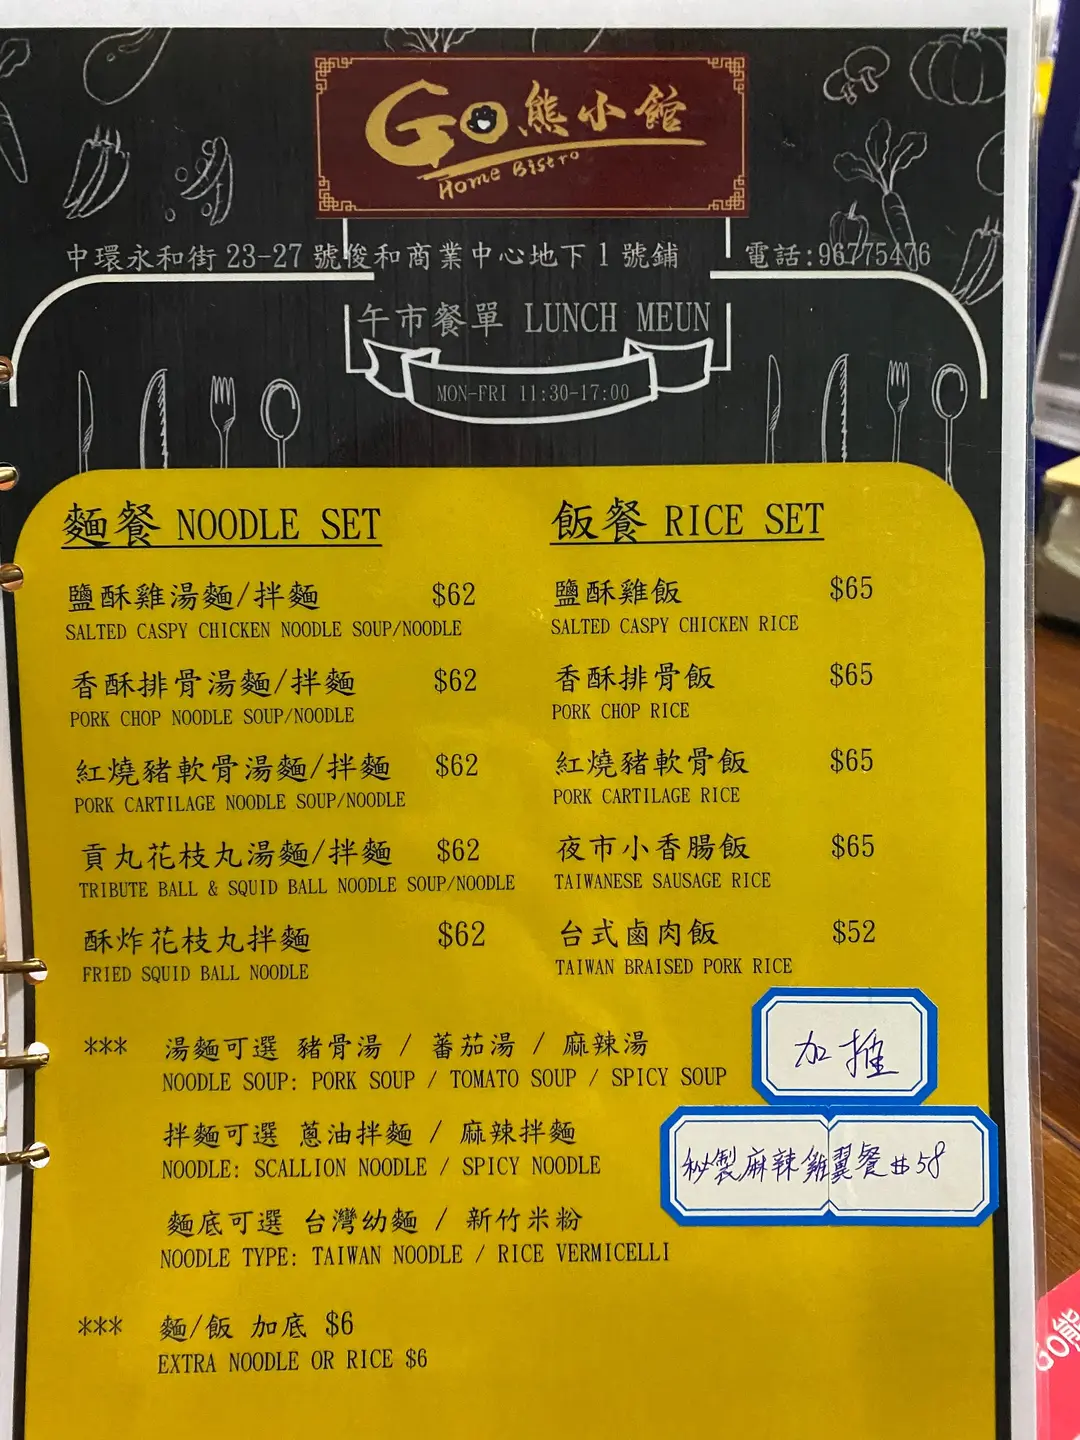 GO熊小館
Home Bistro
中環永和街 23-27 號俊和商業中心地下 1 號鋪 電話:96775476
午市餐單 LUNCH MEUN
MON-FRI 11:30-17:00
麵餐 NOODLE SET
鹽酥雞湯麵/拌麵 $62
SALTED CASPY CHICKEN NOODLE SOUP/NOODLE
香酥排骨湯麵/拌麵 $62
PORK CHOP NOODLE SOUP/NOODLE
紅燒豬軟骨湯麵/拌麵 $62
PORK CARTILAGE NOODLE SOUP/NOODLE
貢丸花枝丸湯麵/拌麵 $62
TRIBUTE BALL & SQUID BALL NOODLE SOUP/NOODLE
酥炸花枝丸拌麵 $62
FRIED SQUID BALL NOODLE
飯餐 RICE SET
鹽酥雞飯 $65
SALTED CASPY CHICKEN RICE
香酥排骨飯 $65
PORK CHOP RICE
紅燒豬軟骨飯 $65
PORK CARTILAGE RICE
夜市小香腸飯 $65
TAIWANESE SAUSAGE RICE
台式鹵肉飯 $52
TAIWAN BRAISED PORK RICE
*** 湯麵可選 豬骨湯 / 蕃茄湯 / 麻辣湯
NOODLE SOUP: PORK SOUP / TOMATO SOUP / SPICY SOUP
拌麵可選 蔥油拌麵 / 麻辣拌麵
NOODLE: SCALLION NOODLE / SPICY NOODLE
麵底可選 台灣幼麵 / 新竹米粉
NOODLE TYPE: TAIWAN NOODLE / RICE VERMICELLI
*** 麵/飯 加底 $6
EXTRA NOODLE OR RICE $6
加推
秘製麻辣雞翼餐 $58
GO熊